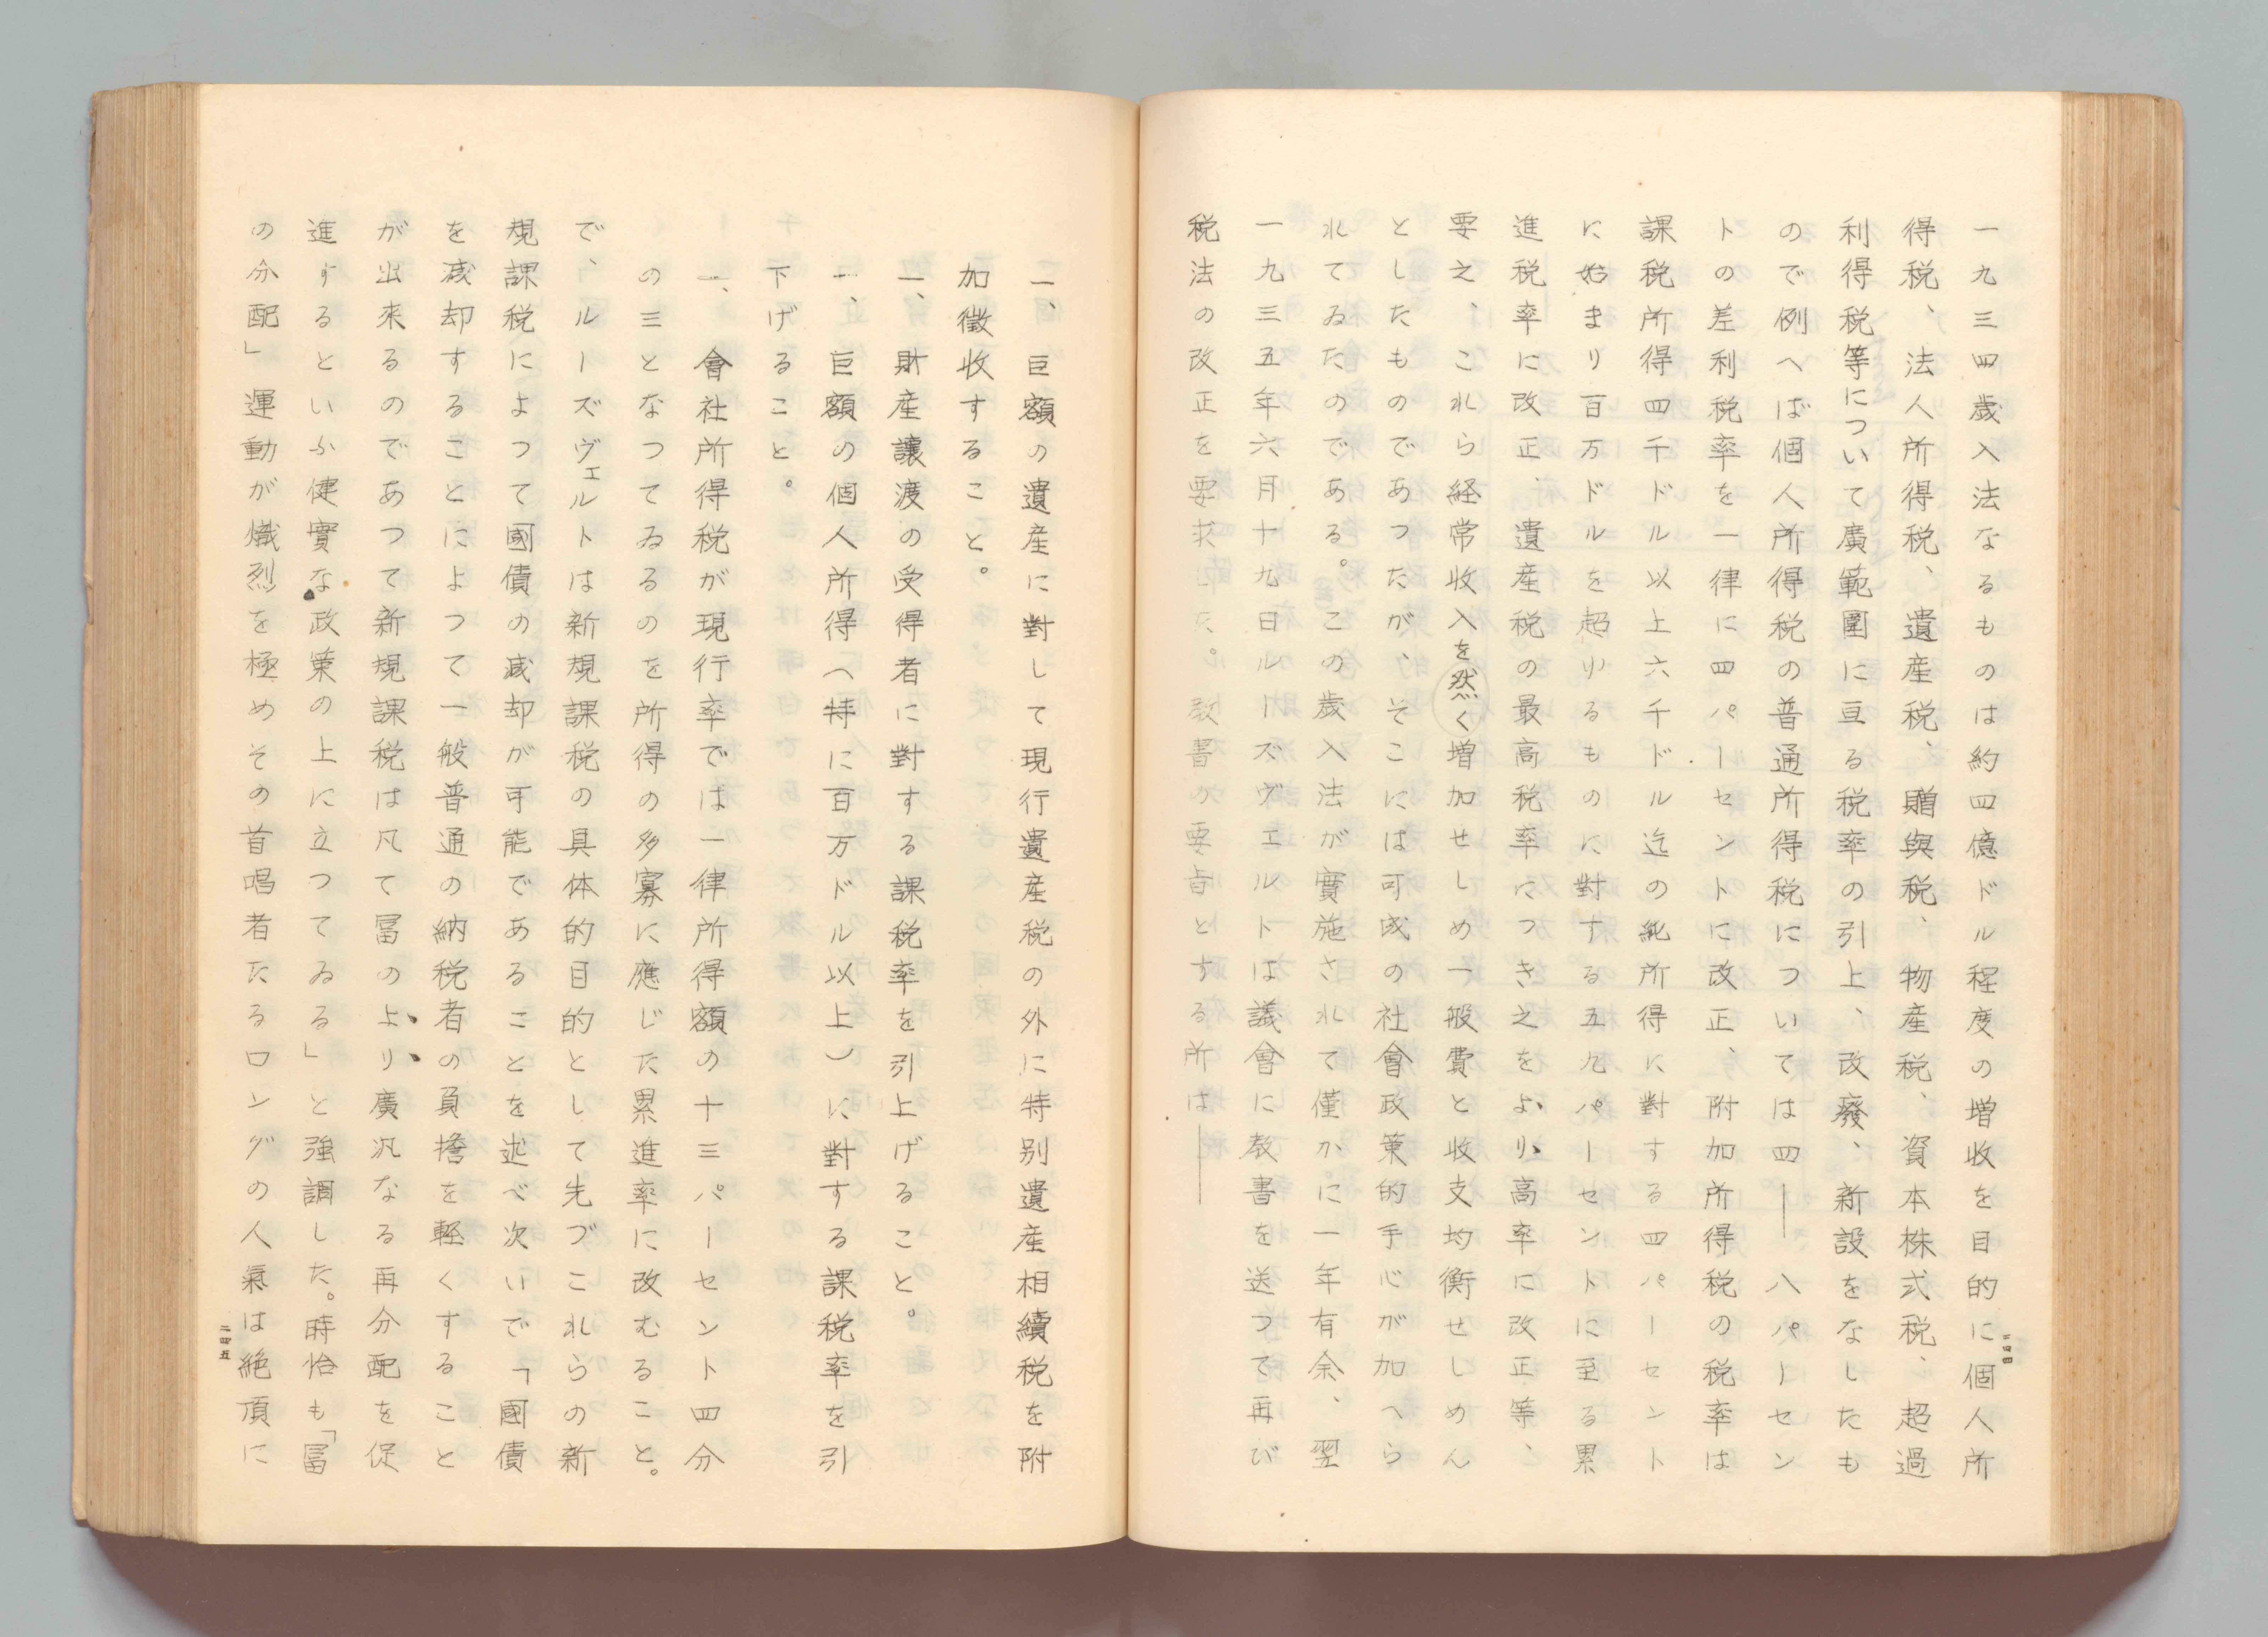 一九三四歳入法なるものは約四億ドル程度の増收を目的に個人所
得税、法人所得税、遺産税、贈與税、物産税、資本株式税、超過
利得税等について廣範圍に亘る税率の引上、改廢、新設をなしたも
ので例へば個人所得税の普通所得税については四——八パーセン
トの差利税率を一律に四パーセントに改正、附加所得税の税率は
課税所得四千ドル以上六千ドル迄の純所得に對する四パーセント
に始まり百万ドルを超ゆるものに對する五九パーセントに至る累
進税率に改正、遺産税の最高税率につき之をより高率に改正等、
要之、これら経常收入を然く増加せしめ一般費と收支均衡せしめん
としたものであつたが、そこには可成の社會政策的手心が加へら
れてゐたのである。この歳入法が實施されて僅かに一年有余、翌
一九三五年六月十九日ルーズヴェルトは議會に教書を送つて再び
税法の改正を要求した。教書の要旨とする所は——
二四四
一、巨額の遺産に對して現行遺産税の外に特別遺産相續税を附
加徴收すること。
一、財産讓渡の受得者に對する課税率を引上げること。
一、巨額の個人所得（特に百万ドル以上）に對する課税率を引
下げること。
一、會社所得税が現行率では一律所得額の十三パーセント四分
の三となつてゐるのを所得の多寡に應じた累進率に改むること。
で、ルーズヴェルトは新規課税の具体的目的として先づこれらの新
規課税によつて國債の減却が可能であることを述べ次いで「國債
を減却することによつて一般普通の納税者の負擔を軽くすること
が出来るのであつて新規課税は凡て冨のより廣汎なる再分配を促
進するといふ健實な政策の上に立つてゐる」と強調した。時恰も「冨
の分配」運動が熾烈を極めその首唱者たるロングの人氣は絶頂に
二四五